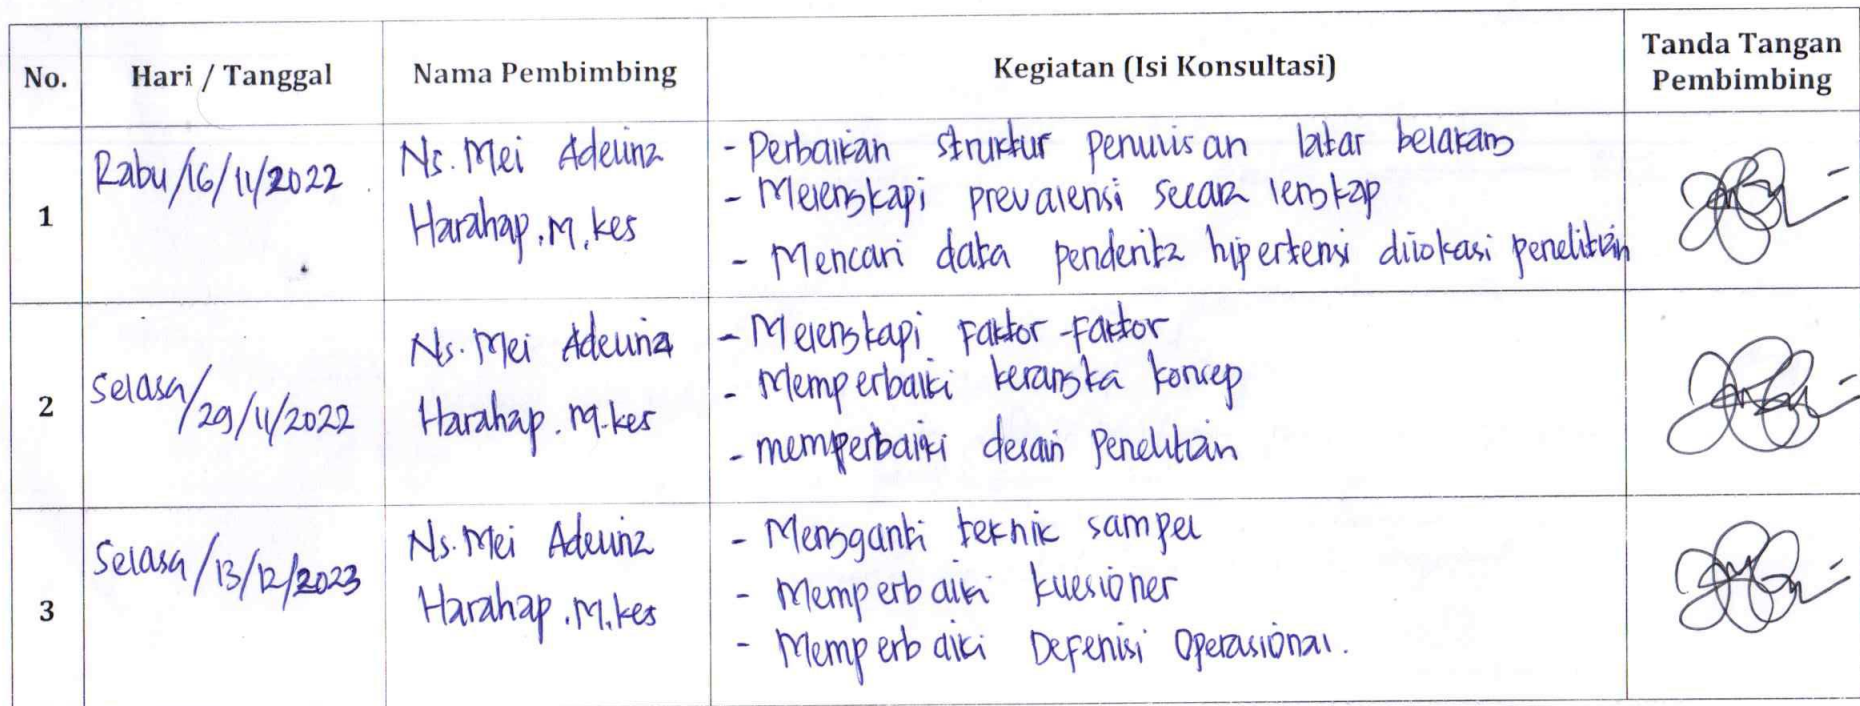 No. Hari / Tanggal Nama Pembimbing Kegiatan (Isi Konsultasi) Tanda Tangan Pembimbing
1 Rabu/16/11/2022 Ns. Mei Adelina Harahap, M.kes
- Perbaikan struktur penulisan latar belakang
- Melengkapi prevalensi secara lengkap
- Mencari data penderita hipertensi dilokasi penelitian
2 Selasa/29/11/2022 Ns. Mei Adelina Harahap. M.kes
- Melengkapi Faktor-Faktor
- Memperbaiki kerangka konsep
- memperbaiki desain Penelitian
3 Selasa/13/12/2023 Ns. Mei Adelina Harahap. M.kes
- Mengganti teknik sampel
- Memperbaiki kuesioner
- Memperbaiki Defenisi Operasional.